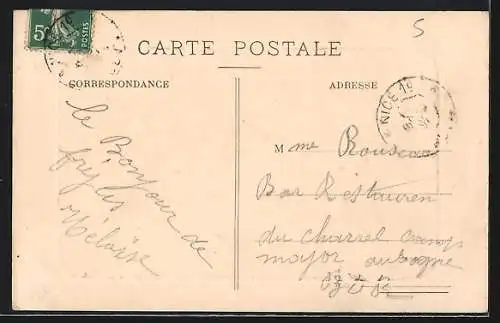 5
POSTES
5
CARTE POSTALE
CORRESPONDANCE
ADRESSE
NICE
le Bonjour de
fréjus
Mme Rouseau
Bar Restauren
du Charrel Camp
major aubagne